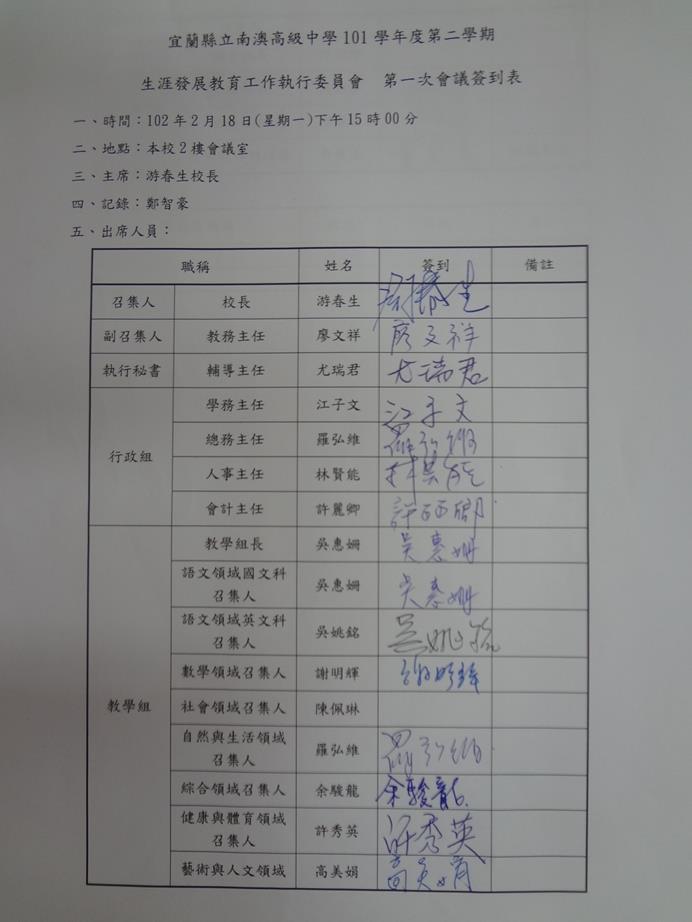 宜蘭縣立南澳高級中學 101 學年度第二學期
生涯發展教育工作執行委員會　第一次會議簽到表
一、時間：102 年 2 月 18 日(星期一)下午 15 時 00 分
二、地點：本校 2 樓會議室
三、主席：游春生校長
四、記錄：鄭智豪
五、出席人員：
職稱 姓名 簽到 備註
召集人 校長 游春生 游春生
副召集人 教務主任 廖文祥 廖文祥
執行秘書 輔導主任 尤瑞君 尤瑞君
行政組
學務主任 江子文 江子文
總務主任 羅弘維 羅弘維
人事主任 林賢能 林賢能
會計主任 許麗卿 許麗卿
教學組
教學組長 吳惠姍 吳惠姍
語文領域國文科
召集人 吳惠姍 吳惠姍
語文領域英文科
召集人 吳姚銘 吳姚銘
數學領域召集人 謝明輝 謝明輝
社會領域召集人 陳佩琳
自然與生活領域
召集人 羅弘維 羅弘維
綜合領域召集人 余駿龍 余駿龍
健康與體育領域
召集人 許秀英 許秀英
藝術與人文領域 高美娟 高美娟